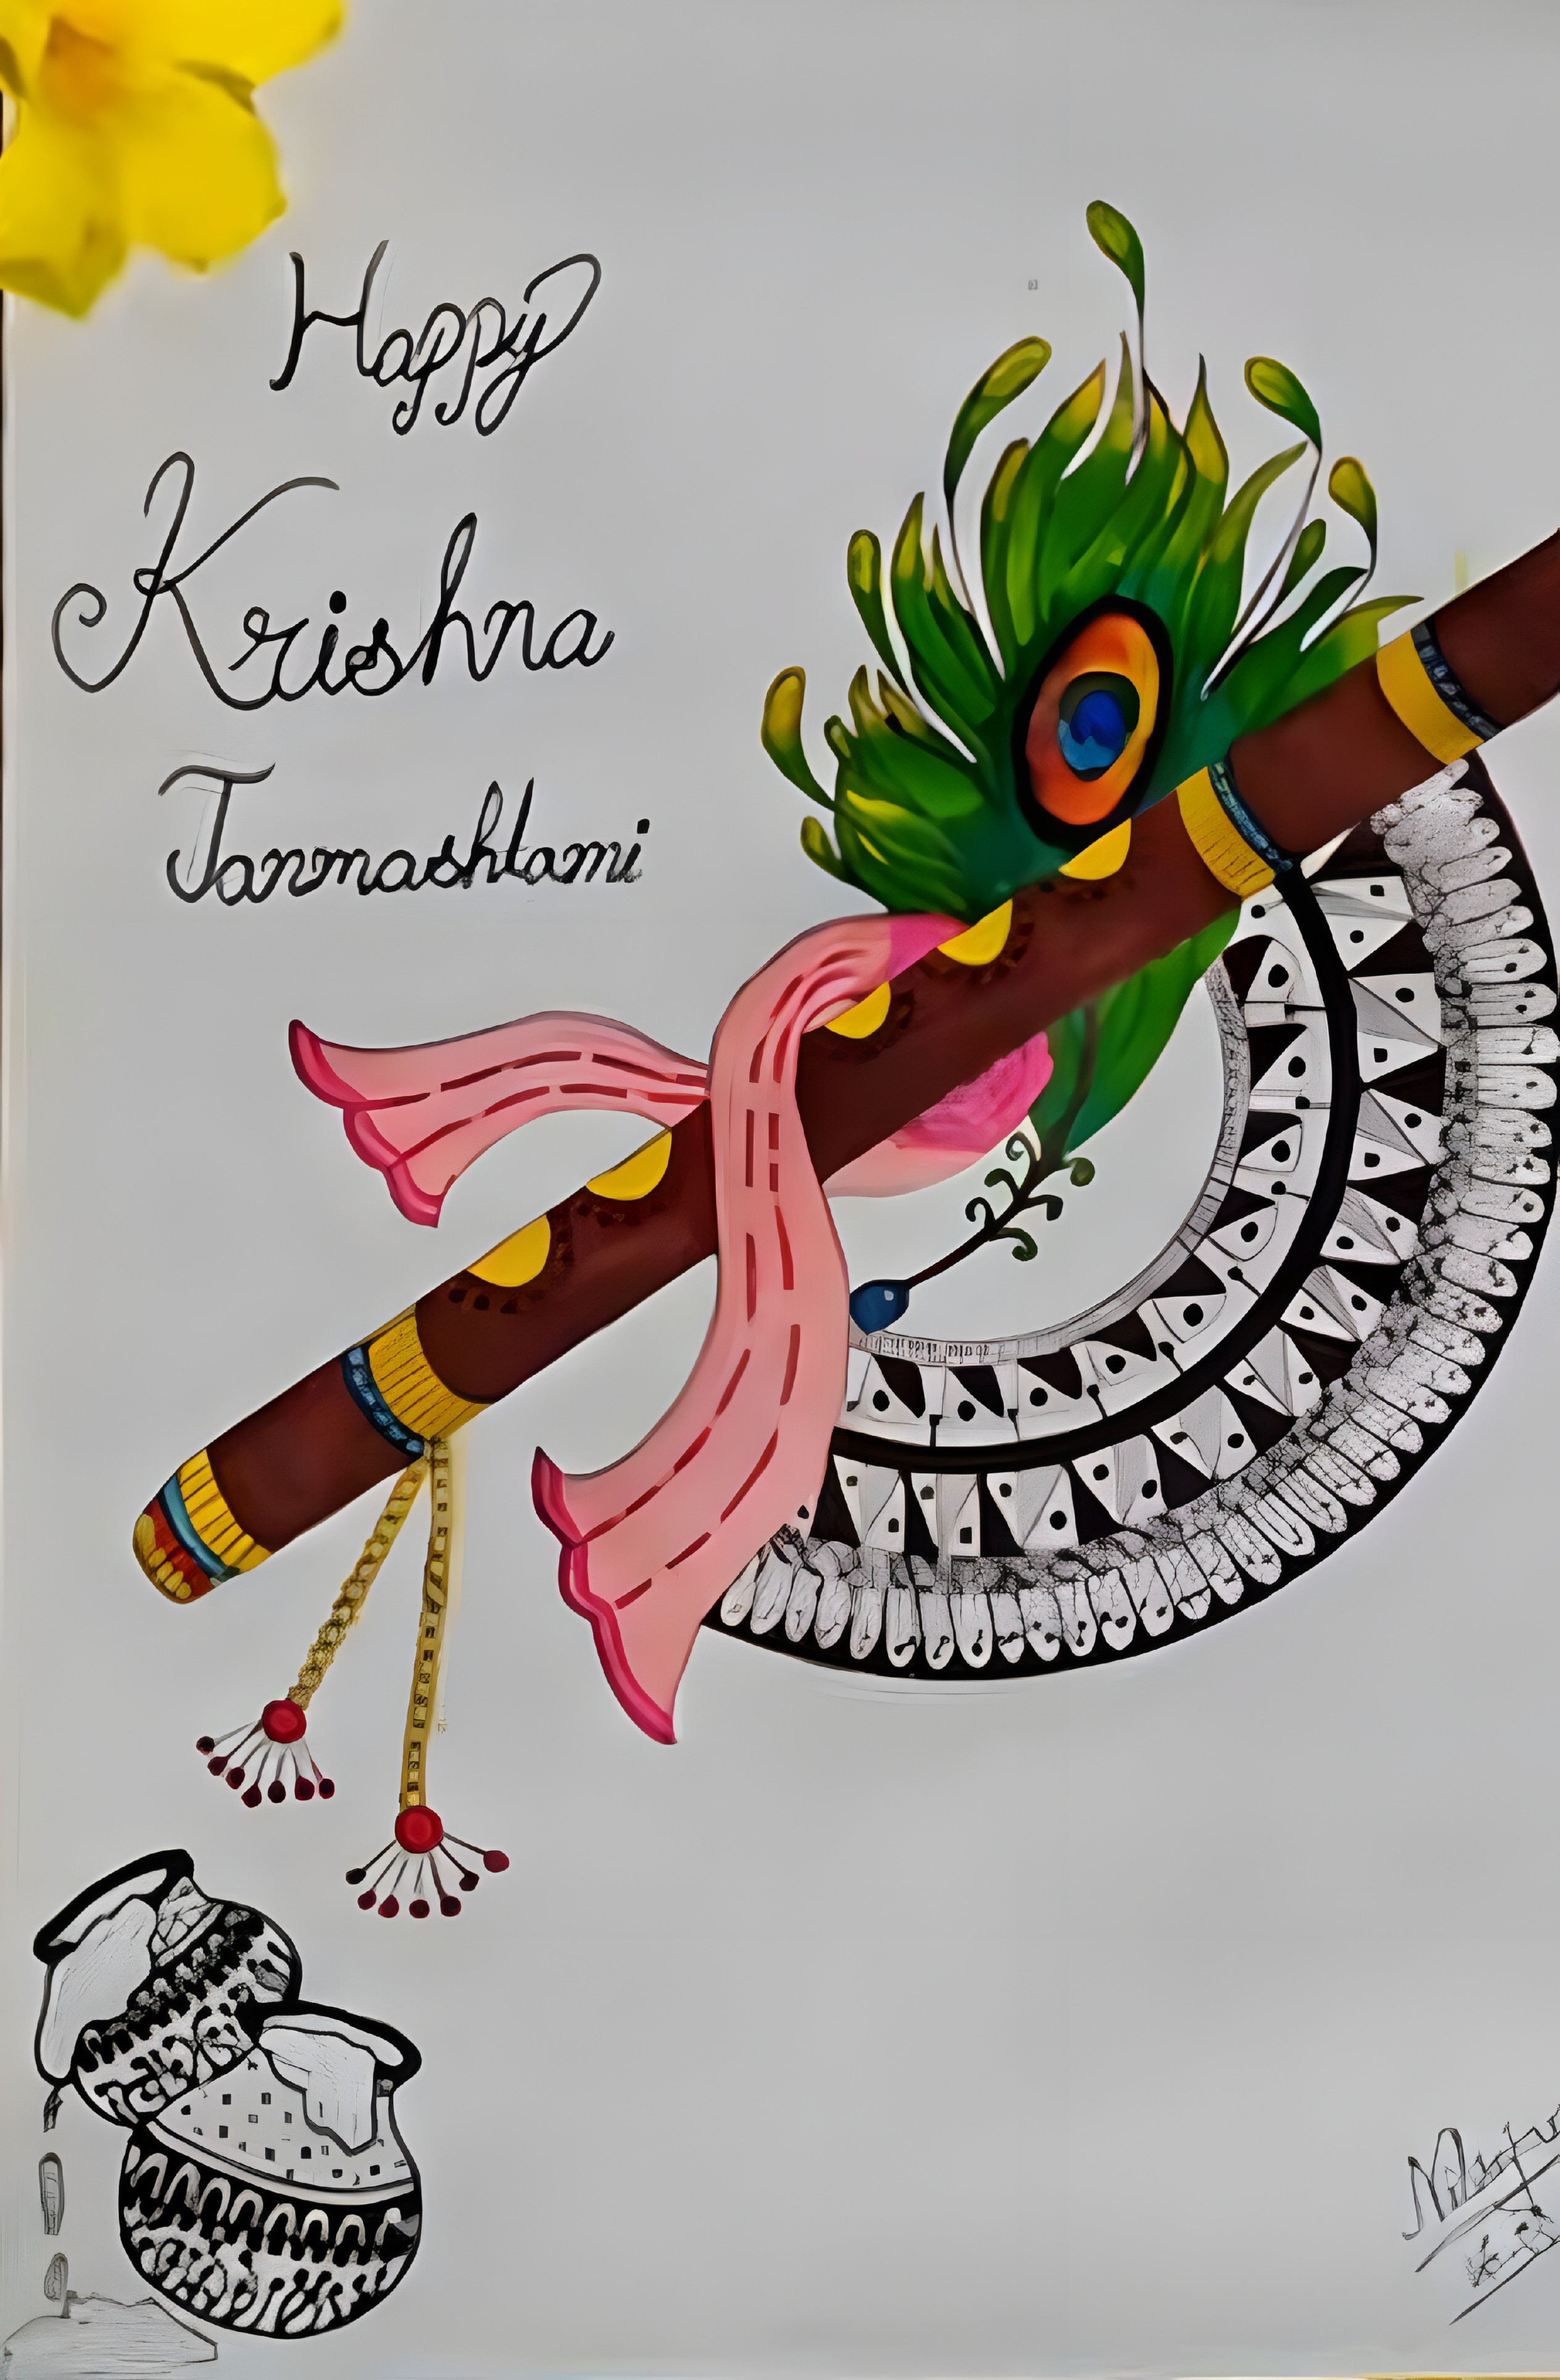 Happy
Krishna
Janmashtami